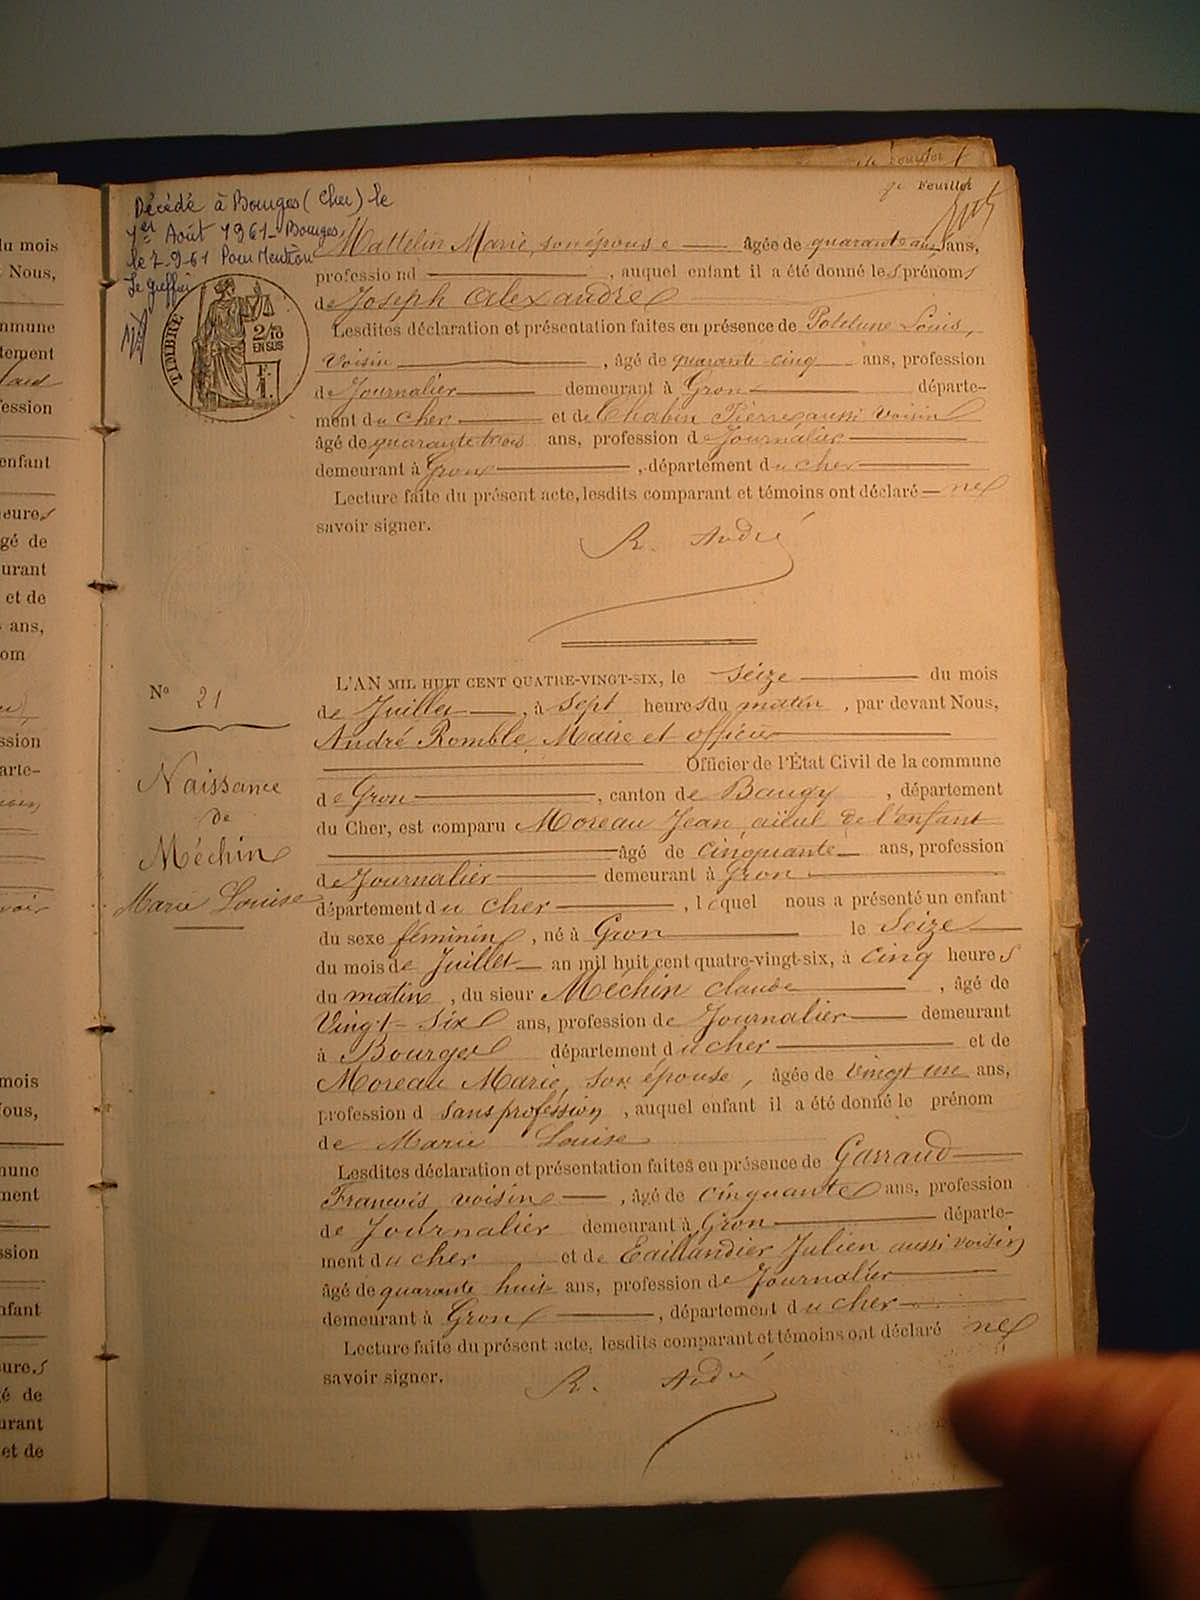 Feuillet
Décédé à Bourges (Cher) le
1er Août 1961 - Bourges,
le 7-9-61 Pour Mention
Le greffier
TIMBRE
2/10
EN SUS
Mattelin Marie, son épouse âgée de quarante ans,
profession nd , auquel enfant il a été donné les prénoms
de Joseph Alexandre
Lesdites déclaration et présentation faites en présence de Louis,
Voisin , âgé de quarante-cinq ans, profession
de Journalier demeurant à Gron départe-
ment du cher et de Chabin Pierre aussi voisin
âgé de quarante trois ans, profession de Journalier
demeurant à Gron , département du cher
Lecture faite du présent acte, lesdits comparant et témoins ont déclaré ne
savoir signer.
R. André
No 21
Naissance
de
Méchin
Marie Louise
L'AN MIL HUIT CENT QUATRE-VINGT-SIX, le seize du mois
de Juillet , à sept heures du matin , par devant Nous,
André Romble Maire et officier
Officier de l'État Civil de la commune
de Gron , canton de Baugy , département
du Cher, est comparu Moreau Jean aïeul de l'enfant
âgé de cinquante ans, profession
de Journalier demeurant à Gron
département du cher , lequel nous a présenté un enfant
du sexe féminin , né à Gron le Seize
du mois de Juillet an mil huit cent quatre-vingt-six, à cinq heures
du matin , du sieur Méchin claude , âgé de
Vingt-Six ans, profession de Journalier demeurant
à Bourges département du cher et de
Moreau Marie, son épouse, âgée de vingt un ans,
profession d sans profession , auquel enfant il a été donné le prénom
de Marie Louise
Lesdites déclaration et présentation faites en présence de Garraud
François voisin , âgé de cinquante ans, profession
de Journalier demeurant à Gron départe-
ment du cher et de Taillandier Julien aussi voisin
âgé de quarante huit ans, profession de Journalier
demeurant à Gron , département du cher
Lecture faite du présent acte, lesdits comparant et témoins ont déclaré ne
savoir signer.
R. André